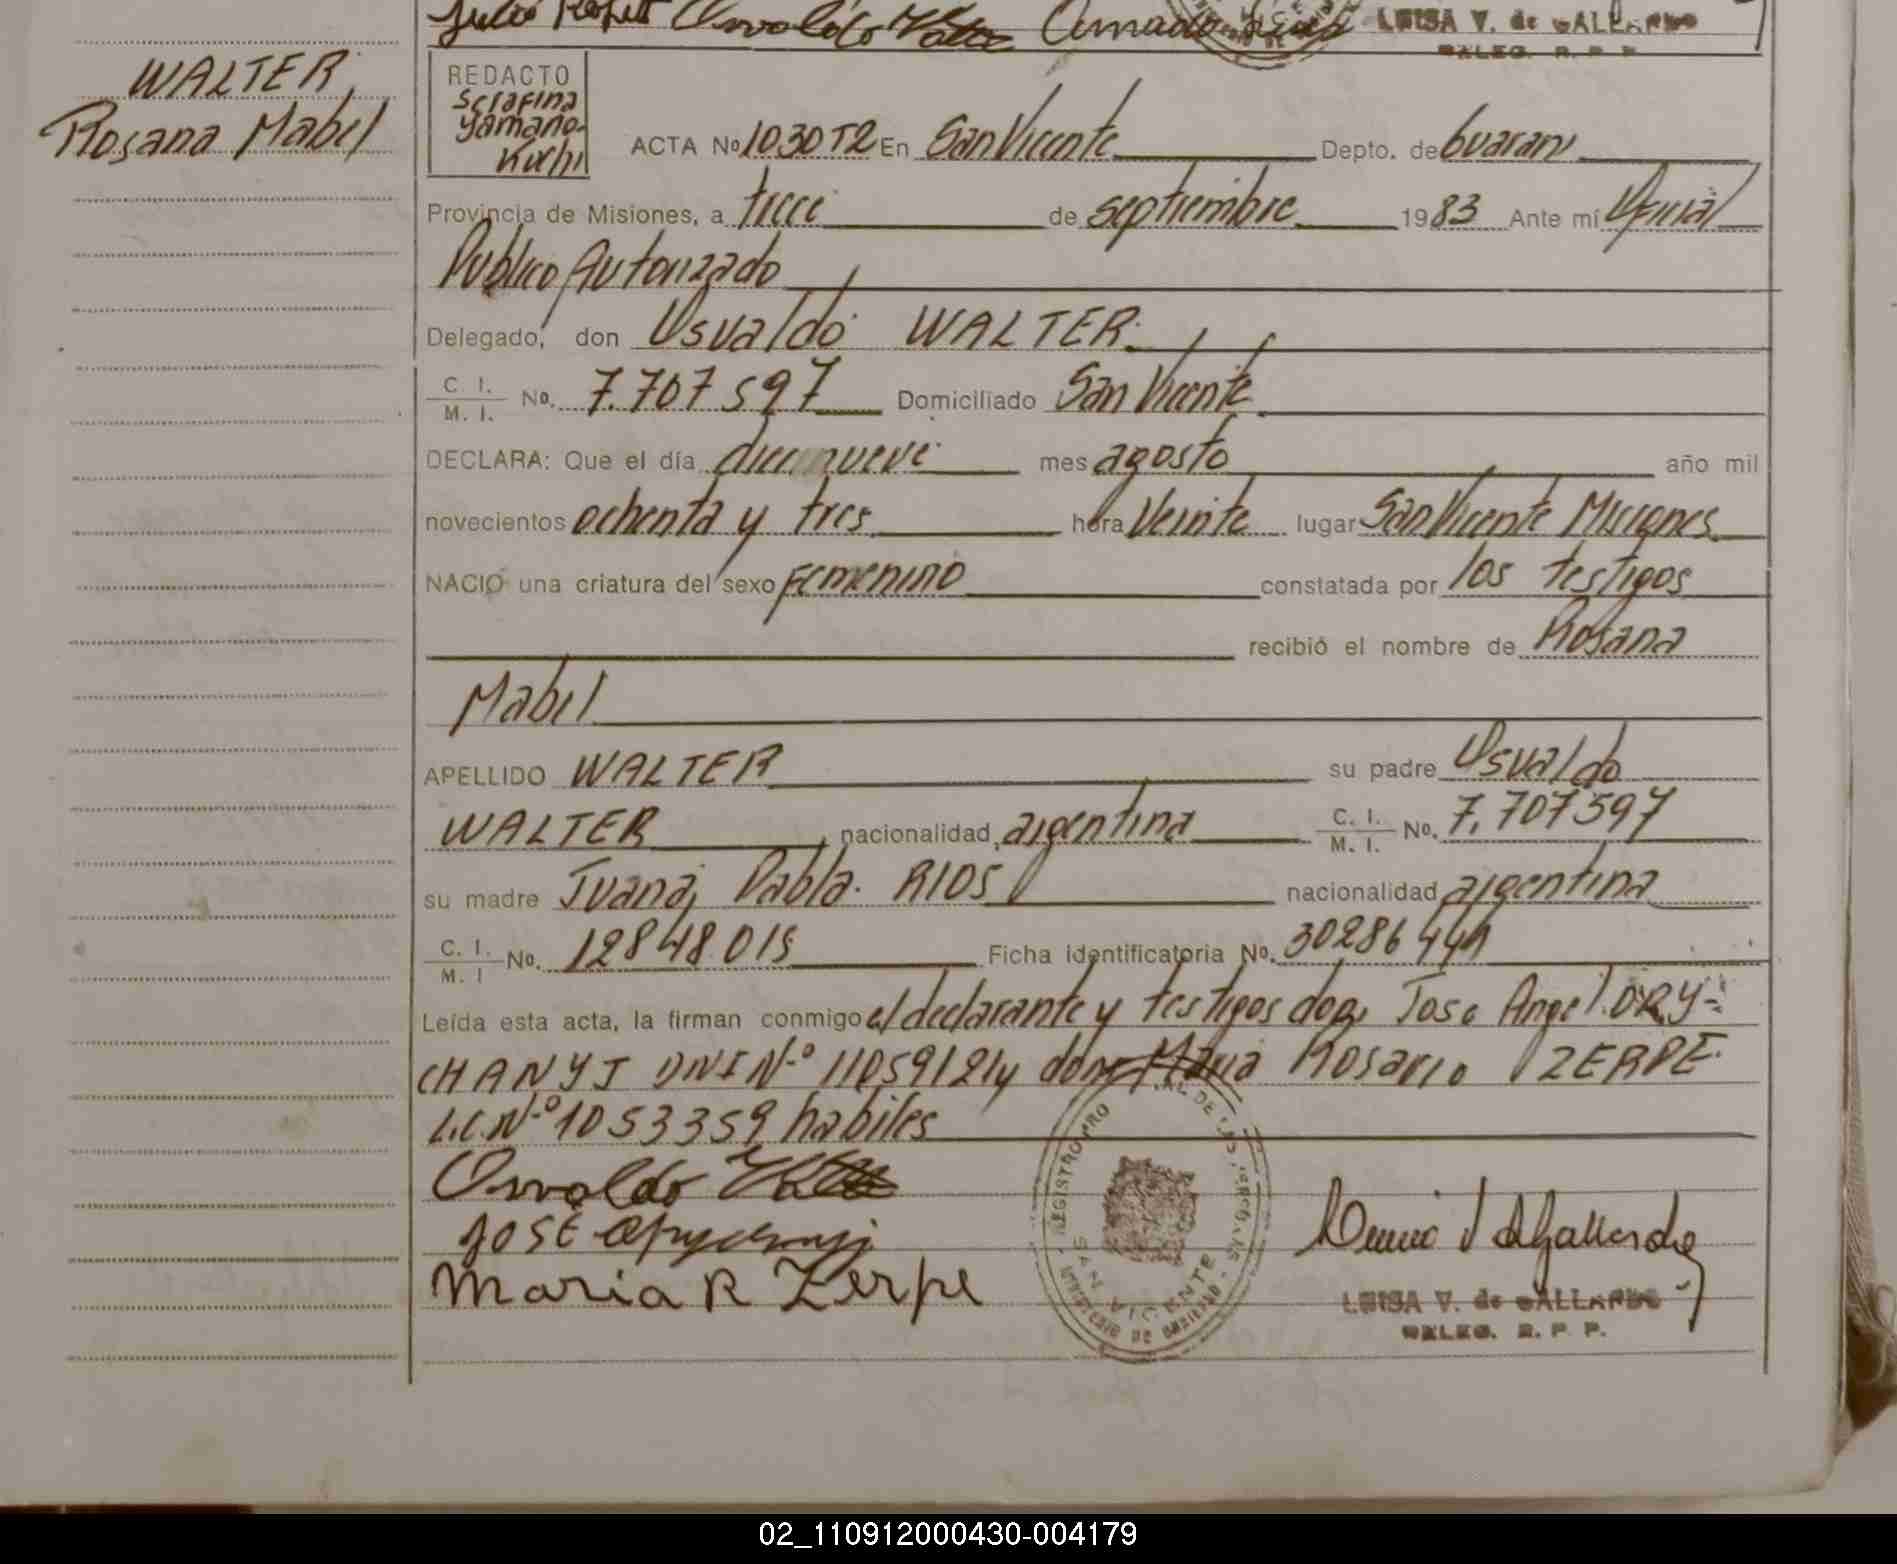 Julio Osvaldo Walter Amado
LUISA V. de GALLARDO
DELEG. R. P. P.
WALTER,
Rosana Mabel
REDACTO
Serafina
Yamano-
Kuchi
ACTA No 1030 T2 En San Vicente Depto. de Guarani
Provincia de Misiones, a trece de septiembre 1983 Ante mí Oficial
Publico Autorizado
Delegado, don Osvaldo WALTER.
C. I. / M. I. No. 7.707 597 Domiciliado San Vicente
DECLARA: Que el día diecinueve mes agosto año mil
novecientos ochenta y tres hora Veinte lugar San Vicente Misiones
NACIO una criatura del sexo Femenino constatada por los testigos
recibió el nombre de Rosana
Mabel
APELLIDO WALTER su padre Osvaldo
WALTER, nacionalidad argentina C. I. / M. I. No. 7.707597
su madre Juana Pabla. RIOS nacionalidad argentina
C. I. / M. I No. 12848.015 Ficha identificatoria No. 30286441
Leída esta acta, la firman conmigo el declarante y testigos don Jose Angel ORY-
CHANYJ DNI Nº 11059121 y doña Maria Rosario ZERPE
L.C. Nº 1053359 habiles
Osvaldo Walter
JOSÉ
Maria R Zerpe
REGISTRO PRO AL DE LAS PERSONAS
SAN VICENTE
MINISTERIO DE GOBIERNO
LUISA V. de GALLARDO
DELEG. R. P. P.
02_110912000430-004179